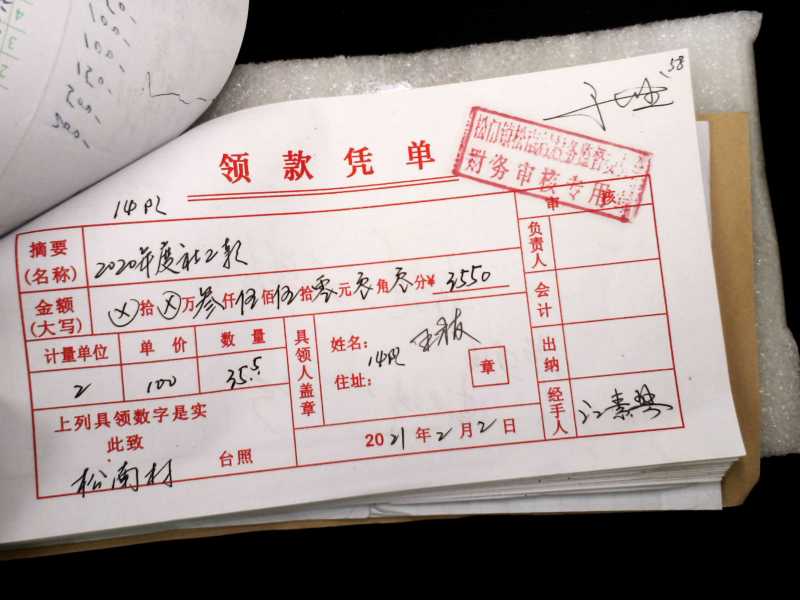 58
松门镇松南村村务监督委
财务审核专用
领款凭单
14PL
摘要(名称) 2020年度社工款
金额(大写) ⊗拾⊗万叁仟伍佰伍拾零元零角零分¥ 3550
计量单位 单价 数量
2 100 35.5
具领人盖章
姓名:
14PL
住址:
章
上列具领数字是实
此致
松南村 台照
2021年2月2日
审核
负责人
会计
出纳
经手人 江素琴
200-
200-
120-
100-
100-
20-
4
3
2